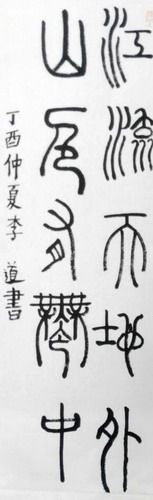 江流天地外
山色有無中
丁酉仲夏李道書